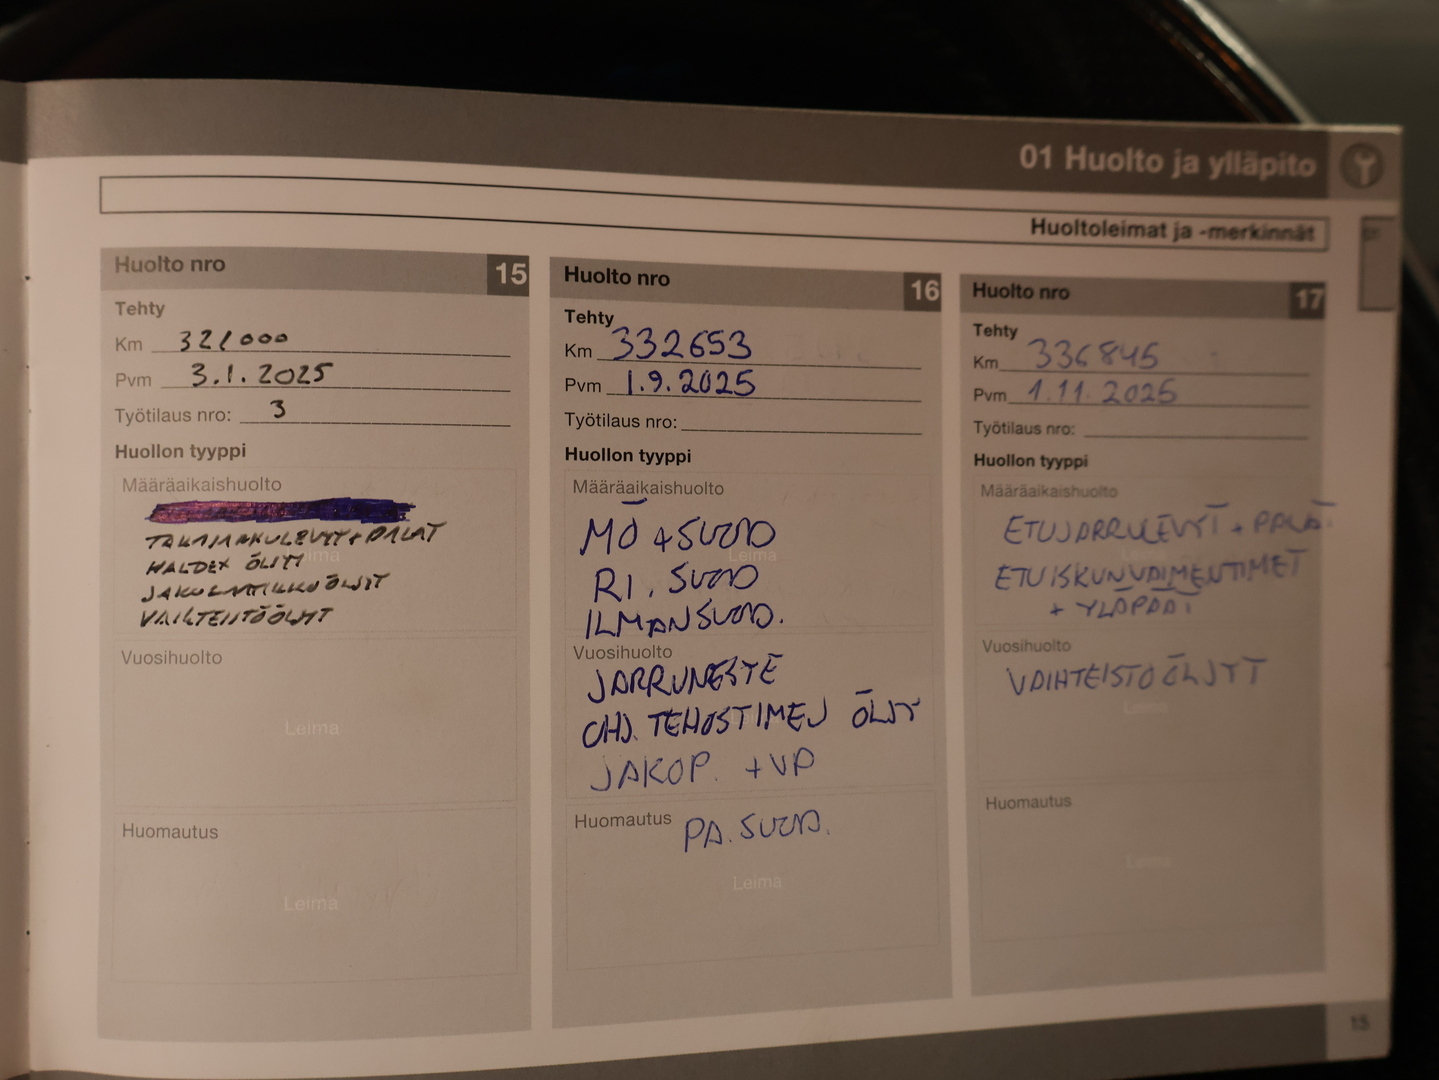 01 Huolto ja ylläpito
Huoltoleimat ja -merkinnät
Huolto nro 15
Tehty
Km 321000
Pvm 3.1.2025
Työtilaus nro: 3
Huollon tyyppi
Määräaikaishuolto
TAKAJARRULEVYT + PALAT
HALDEX ÖLJYT
JAKOLAATIKKOÖLJYT
Leima
Vuosihuolto
Leima
Huomautus
Leima
Huolto nro 16
Tehty
Km 332653
Pvm 1.9.2025
Työtilaus nro:
Huollon tyyppi
Määräaikaishuolto
MÖ + SUOD
Leima
RI. SUOD
ILMANSUOD.
Vuosihuolto
JARRUNESTE
OHJ. TEHOSTIMEN ÖLJY
JAKOP. + VP
Huomautus PA. SUOD.
Leima
Huolto nro 17
Tehty
Km 336845
Pvm 1.11.2025
Työtilaus nro:
Huollon tyyppi
Määräaikaishuolto
ETUJARRULEVYT + PALAT
ETUISKUNVAIMENTIMET
+ YLÄPÄÄT
Vuosihuolto
VAIHTEISTOÖLJYT
Leima
Huomautus
Leima
15